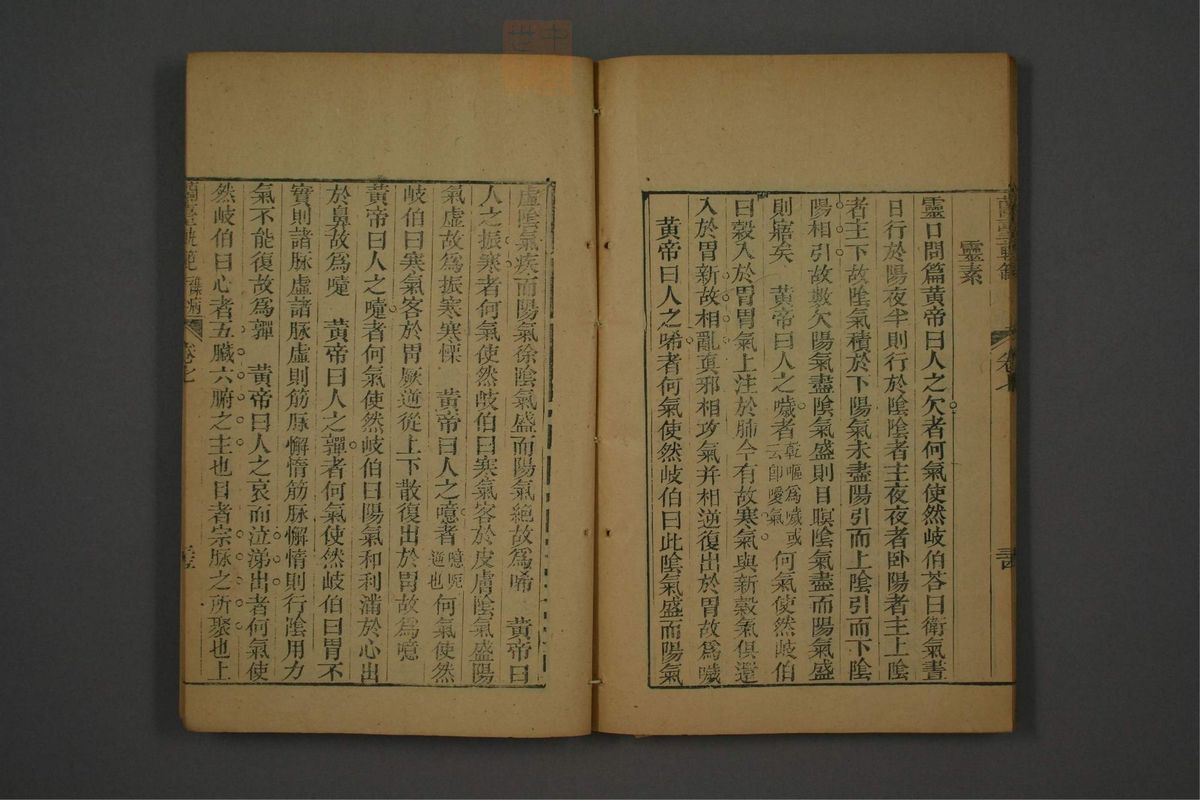 靈素
靈口問篇黃帝曰人之欠者何氣使然岐伯荅曰衛氣晝
日行於陽夜半則行於陰陰者主夜夜者卧陽者主上陰
者主下故陰氣積於下陽氣未盡陽引而上陰引而下陰
陽相引故數欠陽氣盡陰氣盛則目瞑陰氣盡而陽氣盛
則寤矣 黃帝曰人之噦者乾嘔為噦或云即噯氣何氣使然岐伯
曰穀入於胃胃氣上注於肺今有故寒氣與新穀氣俱還
入於胃新故相亂真邪相攻氣并相逆復出於胃故為噦
黃帝曰人之唏者何氣使然岐伯曰此陰氣盛而陽氣
卷七
虛陰氣疾而陽氣徐陰氣盛而陽氣絕故為唏 黃帝曰
人之振寒者何氣使然岐伯曰寒氣客於皮膚陰氣盛陽
氣虛故為振寒寒慄 黃帝曰人之噫者噫呃逆也何氣使然
岐伯曰寒氣客於胃厥逆從上下散復出於胃故為噫
黃帝曰人之嚏者何氣使然岐伯曰陽氣和利滿於心出
於鼻故為嚏 黃帝曰人之嚲者何氣使然岐伯曰胃不
實則諸脉虛諸脉虛則筋脉懈惰筋脉懈惰則行陰用力
氣不能復故為嚲 黃帝曰人之哀而泣涕出者何氣使
然岐伯曰心者五臟六腑之主也目者宗脉之所聚也上
蘭臺軌範 雜病 卷七